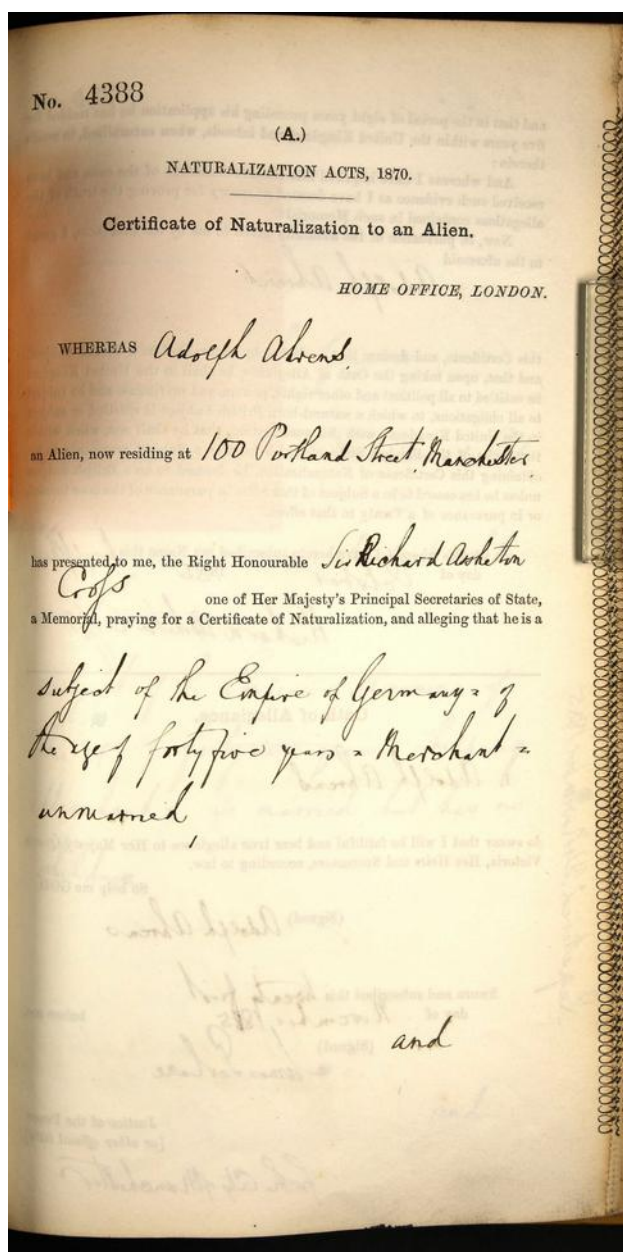 No. 4388
(A.)
NATURALIZATION ACTS, 1870.
Certificate of Naturalization to an Alien.
HOME OFFICE, LONDON.
WHEREAS Adolph Ahrens
an Alien, now residing at 100 Portland Street, Manchester
has presented to me, the Right Honourable Sir Richard Assheton
Cross
one of Her Majesty's Principal Secretaries of State,
a Memorial, praying for a Certificate of Naturalization, and alleging that he is a
subject of the Empire of Germany = of
the age of forty five years = Merchant =
unmarried,
and